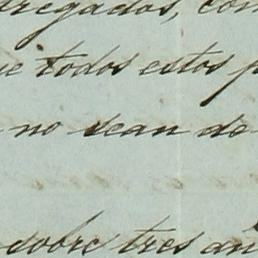 tregadas, con
ue todos estos p
no sean de
sobre tres an